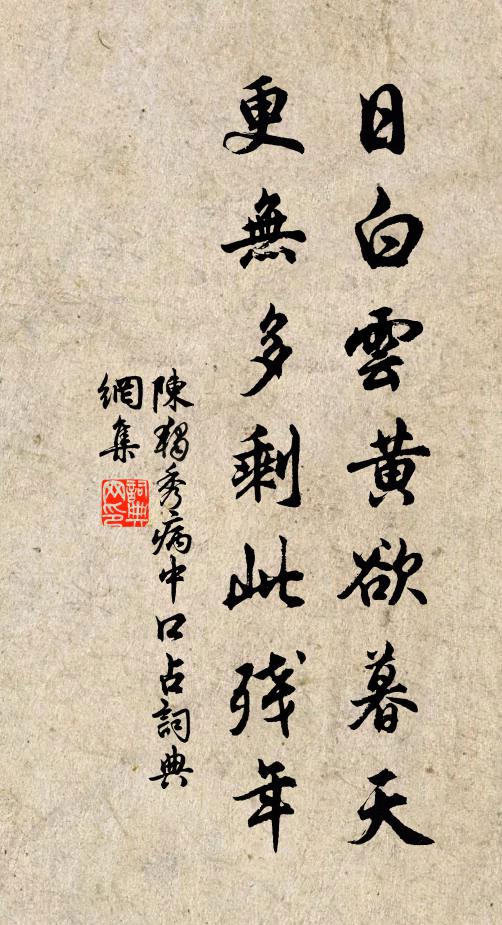 日白雲黃欲暮天
更無多剩此殘年
陳獨秀病中口占詞典
網集
詞典
网印